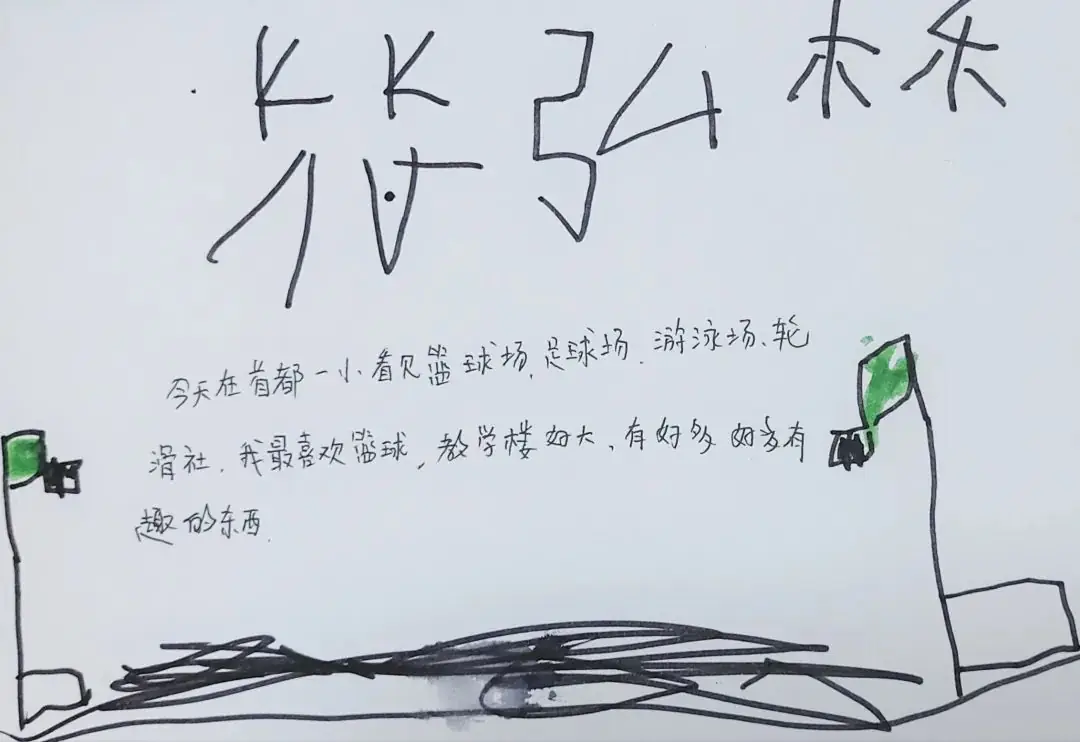 符弘林
今天在首都一小看见篮球场,足球场、游泳场、轮
滑社.我最喜欢篮球,教学楼好大、有好多好多有
趣的东西.